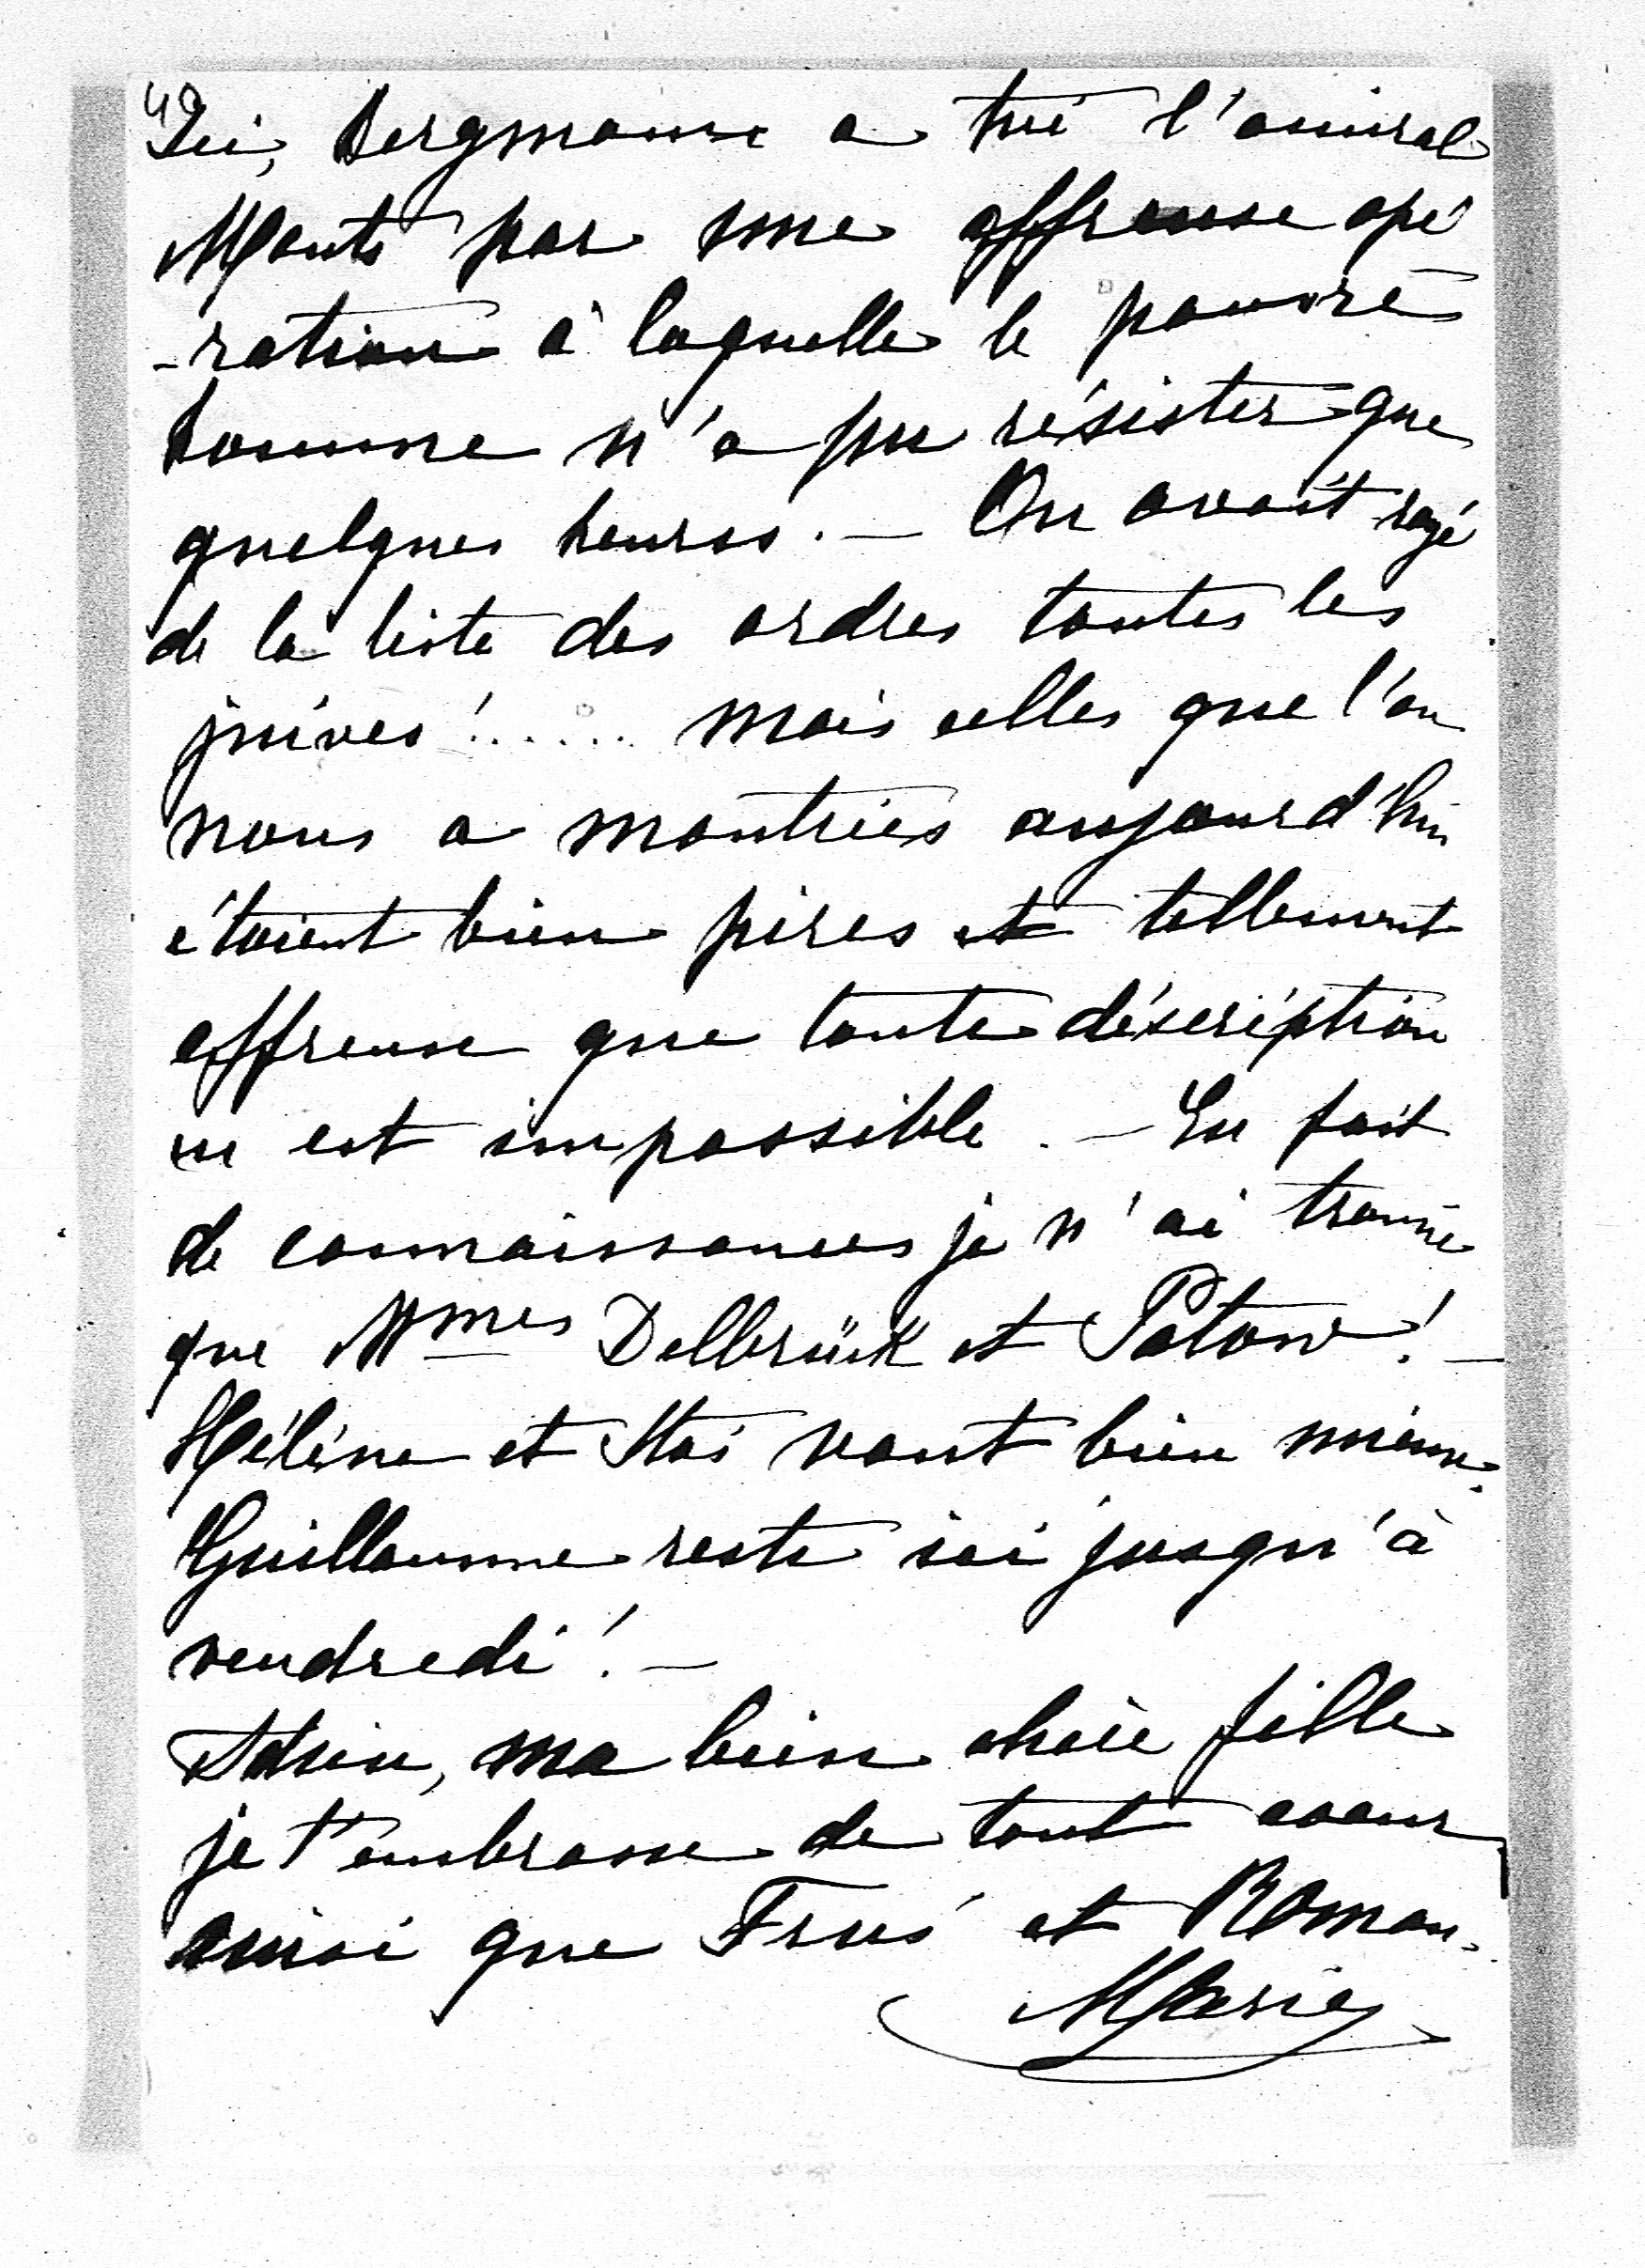 4)
Ici, Bergmann a tué l'amiral
Monts par une affreuse opé
-ration à laquelle le pauvre
homme n'a pu résister que
quelques heures. — On avait rayé
de la liste des ordres toutes les
juives!...... mais celles que l'on
nous a montrées aujourd'hui
étaient bien pires et tellement
affreuse que toute déscription
en est impossible. — En fait
de connaissances je n'ai trouvé
que Mmes Delbrück et Patow! —
Hélène et Stas vont bien mieux.
Guillaume reste ici jusqu'à
vendredi! —
Adieu, ma bien chère fille
je t'embrasse de tout coeur
ainsi que et Roman.
Marie